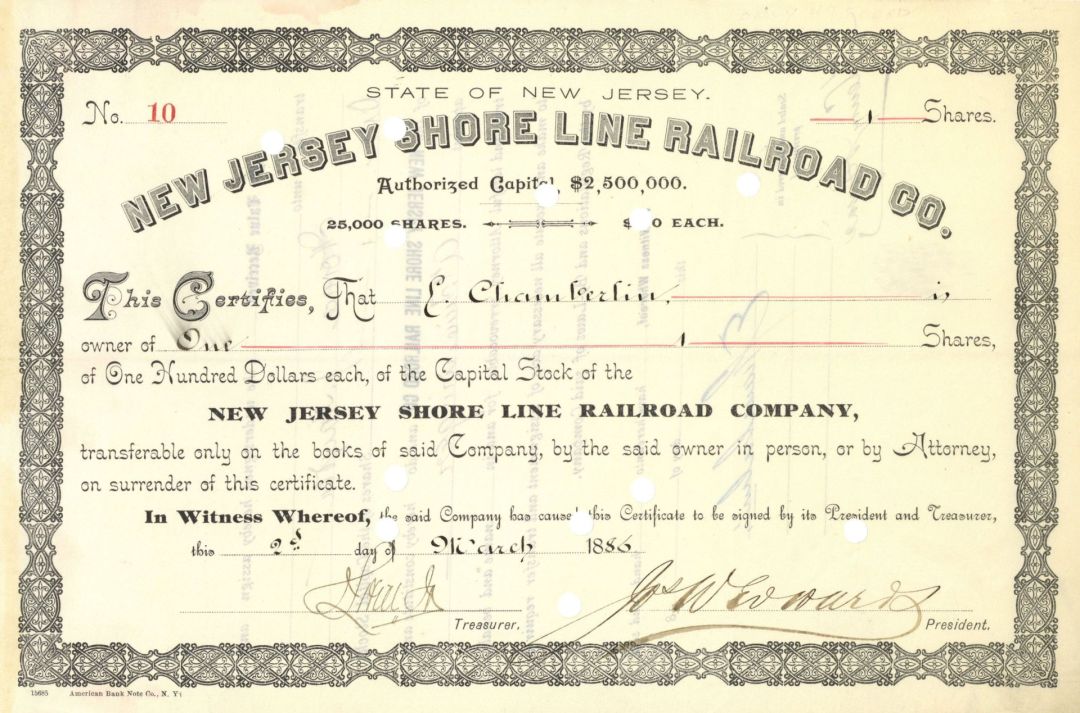 STATE OF NEW JERSEY.
No. 10
1 Shares.
NEW JERSEY SHORE LINE RAILROAD CO.
Authorized Capital, $2,500,000.
25,000 SHARES. $ 0 EACH.
This Certifies, That E. Chamberlin, is
owner of One 1 Shares,
of One Hundred Dollars each, of the Capital Stock of the
NEW JERSEY SHORE LINE RAILROAD COMPANY,
transferable only on the books of said Company, by the said owner in person, or by Attorney,
on surrender of this certificate.
In Witness Whereof, the said Company has caused this Certificate to be signed by its President and Treasurer,
this 2d day of March 1886
Jos W Edwards
Treasurer. President.
15685 American Bank Note Co., N. Y.